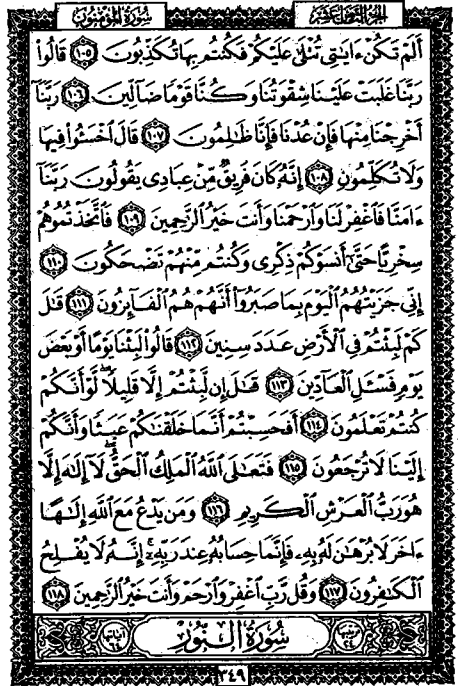 الجزء الثامن عشر
سُورَةُ المُؤْمِنُونَ
أَلَمْ تَكُنْ ءَايَٰتِى تُتْلَىٰ عَلَيْكُمْ فَكُنتُم بِهَا تُكَذِّبُونَ ١٠٥ قَالُوا۟
رَبَّنَا غَلَبَتْ عَلَيْنَا شِقْوَتُنَا وَكُنَّا قَوْمًا ضَآلِّينَ ١٠٦ رَبَّنَآ
أَخْرِجْنَا مِنْهَا فَإِنْ عُدْنَا فَإِنَّا ظَٰلِمُونَ ١٠٧ قَالَ ٱخْسَـُٔوا۟ فِيهَا
وَلَا تُكَلِّمُونِ ١٠٨ إِنَّهُۥ كَانَ فَرِيقٌ مِّنْ عِبَادِى يَقُولُونَ رَبَّنَآ
ءَامَنَّا فَٱغْفِرْ لَنَا وَٱرْحَمْنَا وَأَنتَ خَيْرُ ٱلرَّٰحِمِينَ ١٠٩ فَٱتَّخَذْتُمُوهُمْ
سِخْرِيًّا حَتَّىٰٓ أَنسَوْكُمْ ذِكْرِى وَكُنتُم مِّنْهُمْ تَضْحَكُونَ ١١٠
إِنِّى جَزَيْتُهُمُ ٱلْيَوْمَ بِمَا صَبَرُوٓا۟ أَنَّهُمْ هُمُ ٱلْفَآئِزُونَ ١١١ قَٰلَ
كَمْ لَبِثْتُمْ فِى ٱلْأَرْضِ عَدَدَ سِنِينَ ١١٢ قَالُوا۟ لَبِثْنَا يَوْمًا أَوْ بَعْضَ
يَوْمٍ فَسْـَٔلِ ٱلْعَآدِّينَ ١١٣ قَٰلَ إِن لَّبِثْتُمْ إِلَّا قَلِيلًا ۖ لَّوْ أَنَّكُمْ
كُنتُمْ تَعْلَمُونَ ١١٤ أَفَحَسِبْتُمْ أَنَّمَا خَلَقْنَٰكُمْ عَبَثًا وَأَنَّكُمْ
إِلَيْنَا لَا تُرْجَعُونَ ١١٥ فَتَعَٰلَى ٱللَّهُ ٱلْمَلِكُ ٱلْحَقُّ ۖ لَآ إِلَٰهَ إِلَّا
هُوَ رَبُّ ٱلْعَرْشِ ٱلْكَرِيمِ ١١٦ وَمَن يَدْعُ مَعَ ٱللَّهِ إِلَٰهًا
ءَاخَرَ لَا بُرْهَٰنَ لَهُۥ بِهِۦ فَإِنَّمَا حِسَابُهُۥ عِندَ رَبِّهِۦٓ ۚ إِنَّهُۥ لَا يُفْلِحُ
ٱلْكَٰفِرُونَ ١١٧ وَقُل رَّبِّ ٱغْفِرْ وَٱرْحَمْ وَأَنتَ خَيْرُ ٱلرَّٰحِمِينَ ١١٨
سُورَةُ النُّورِ
آياتها ٦٤
٣٤٩